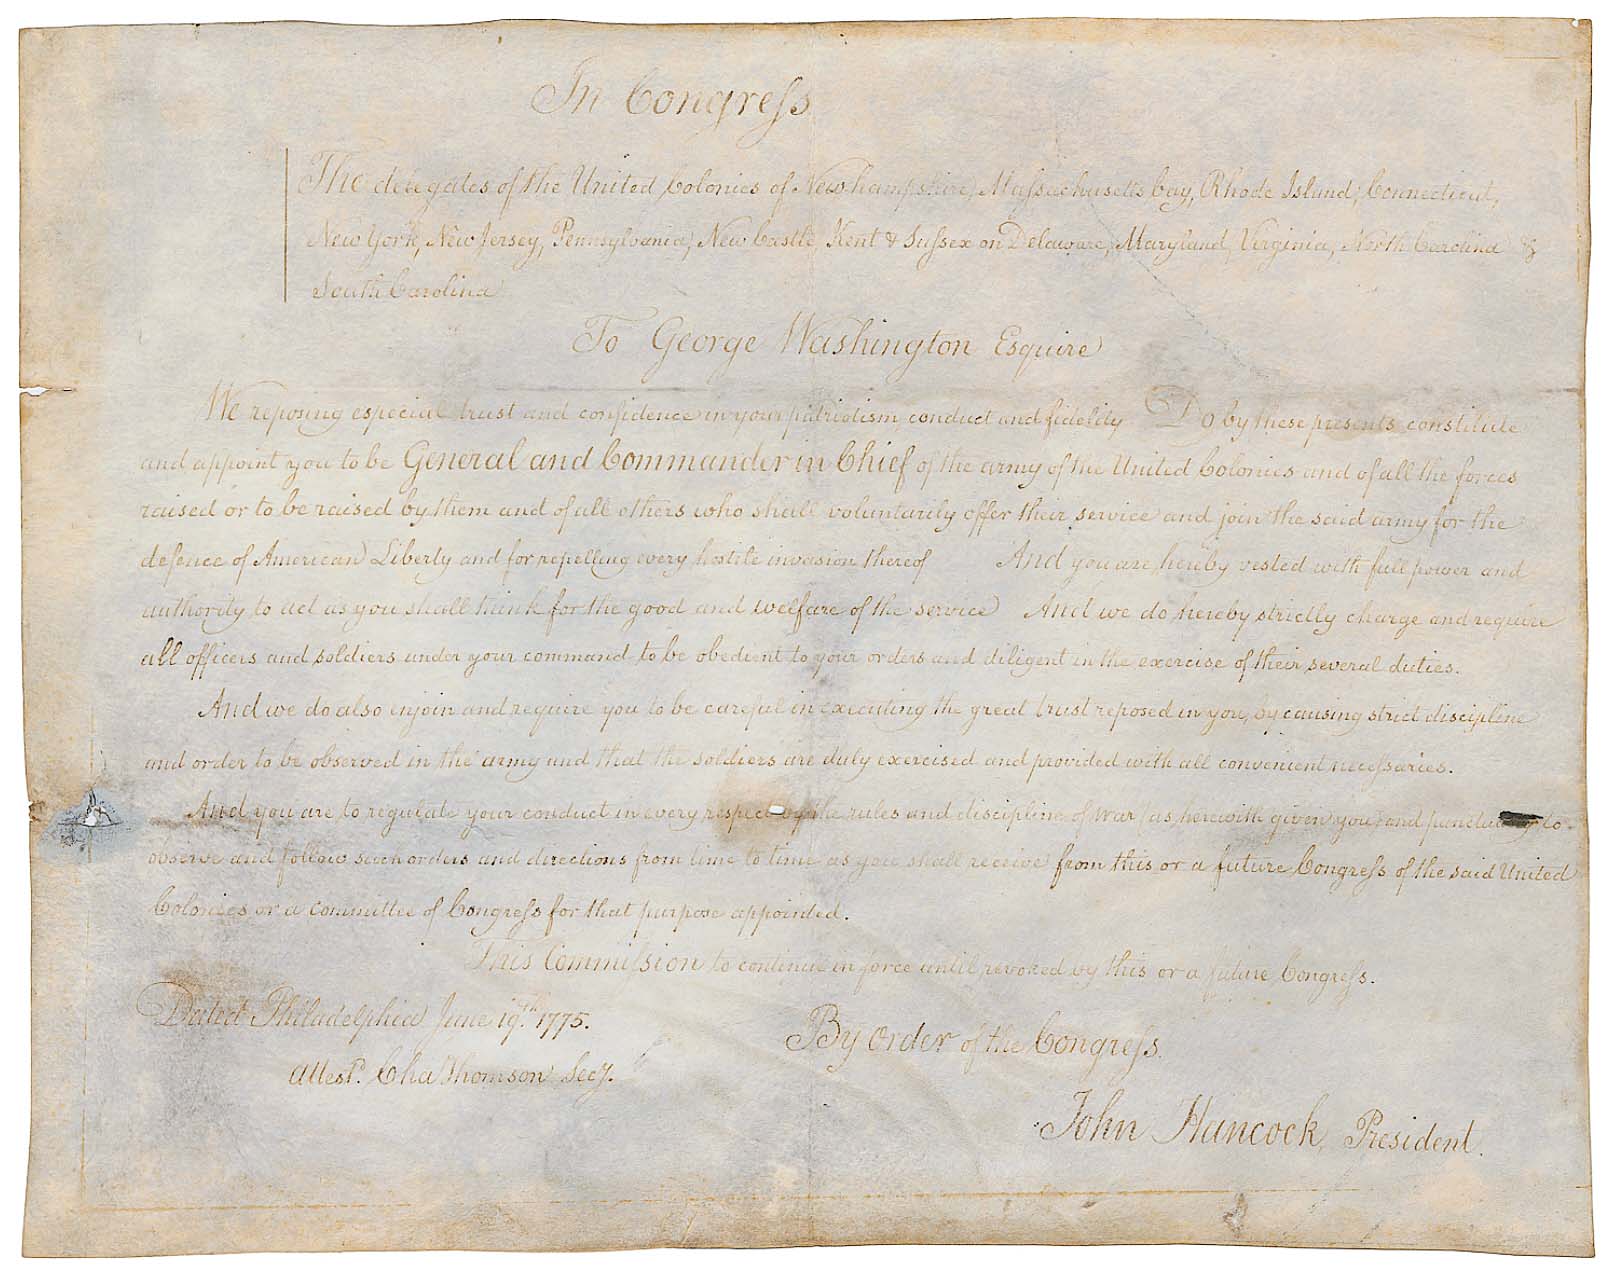 In Congress
The delegates of the United Colonies of New hampshire, Massachusetts bay, Rhode Island, Connecticut,
New York, New Jersey, Pennsylvania, New Castle, Kent & Sussex on Delaware, Maryland, Virginia, North Carolina &
South Carolina
To George Washington Esquire
We reposing especial trust and confidence in your patriotism, conduct and fidelity Do by these presents constitute
and appoint you to be General and Commander in Chief of the army of the United Colonies and of all the forces
raised or to be raised by them and of all others who shall voluntarily offer their service and join the said army for the
defence of American Liberty and for repelling every hostile invasion thereof And you are hereby vested with full power and
authority to act as you shall think for the good and welfare of the service And we do hereby strictly charge and require
all officers and soldiers under your command to be obedient to your orders and diligent in the exercise of their several duties.
And we do also enjoin and require you to be careful in executing the great trust reposed in you, by causing strict discipline
and order to be observed in the army and that the soldiers are duly exercised and provided with all convenient necessaries.
And you are to regulate your conduct in every respect by the rules and discipline of war (as herewith given you) and punctually to
observe and follow such orders and directions from time to time as you shall receive from this or a future Congress of the said United
Colonies or a committee of Congress for that purpose appointed.
This Commission to continue in force until revoked by this or a future Congress.
Dated Philadelphia June 19th. 1775.
By order of the Congress.
Attest. Cha Thomson Secy.
John Hancock, President.